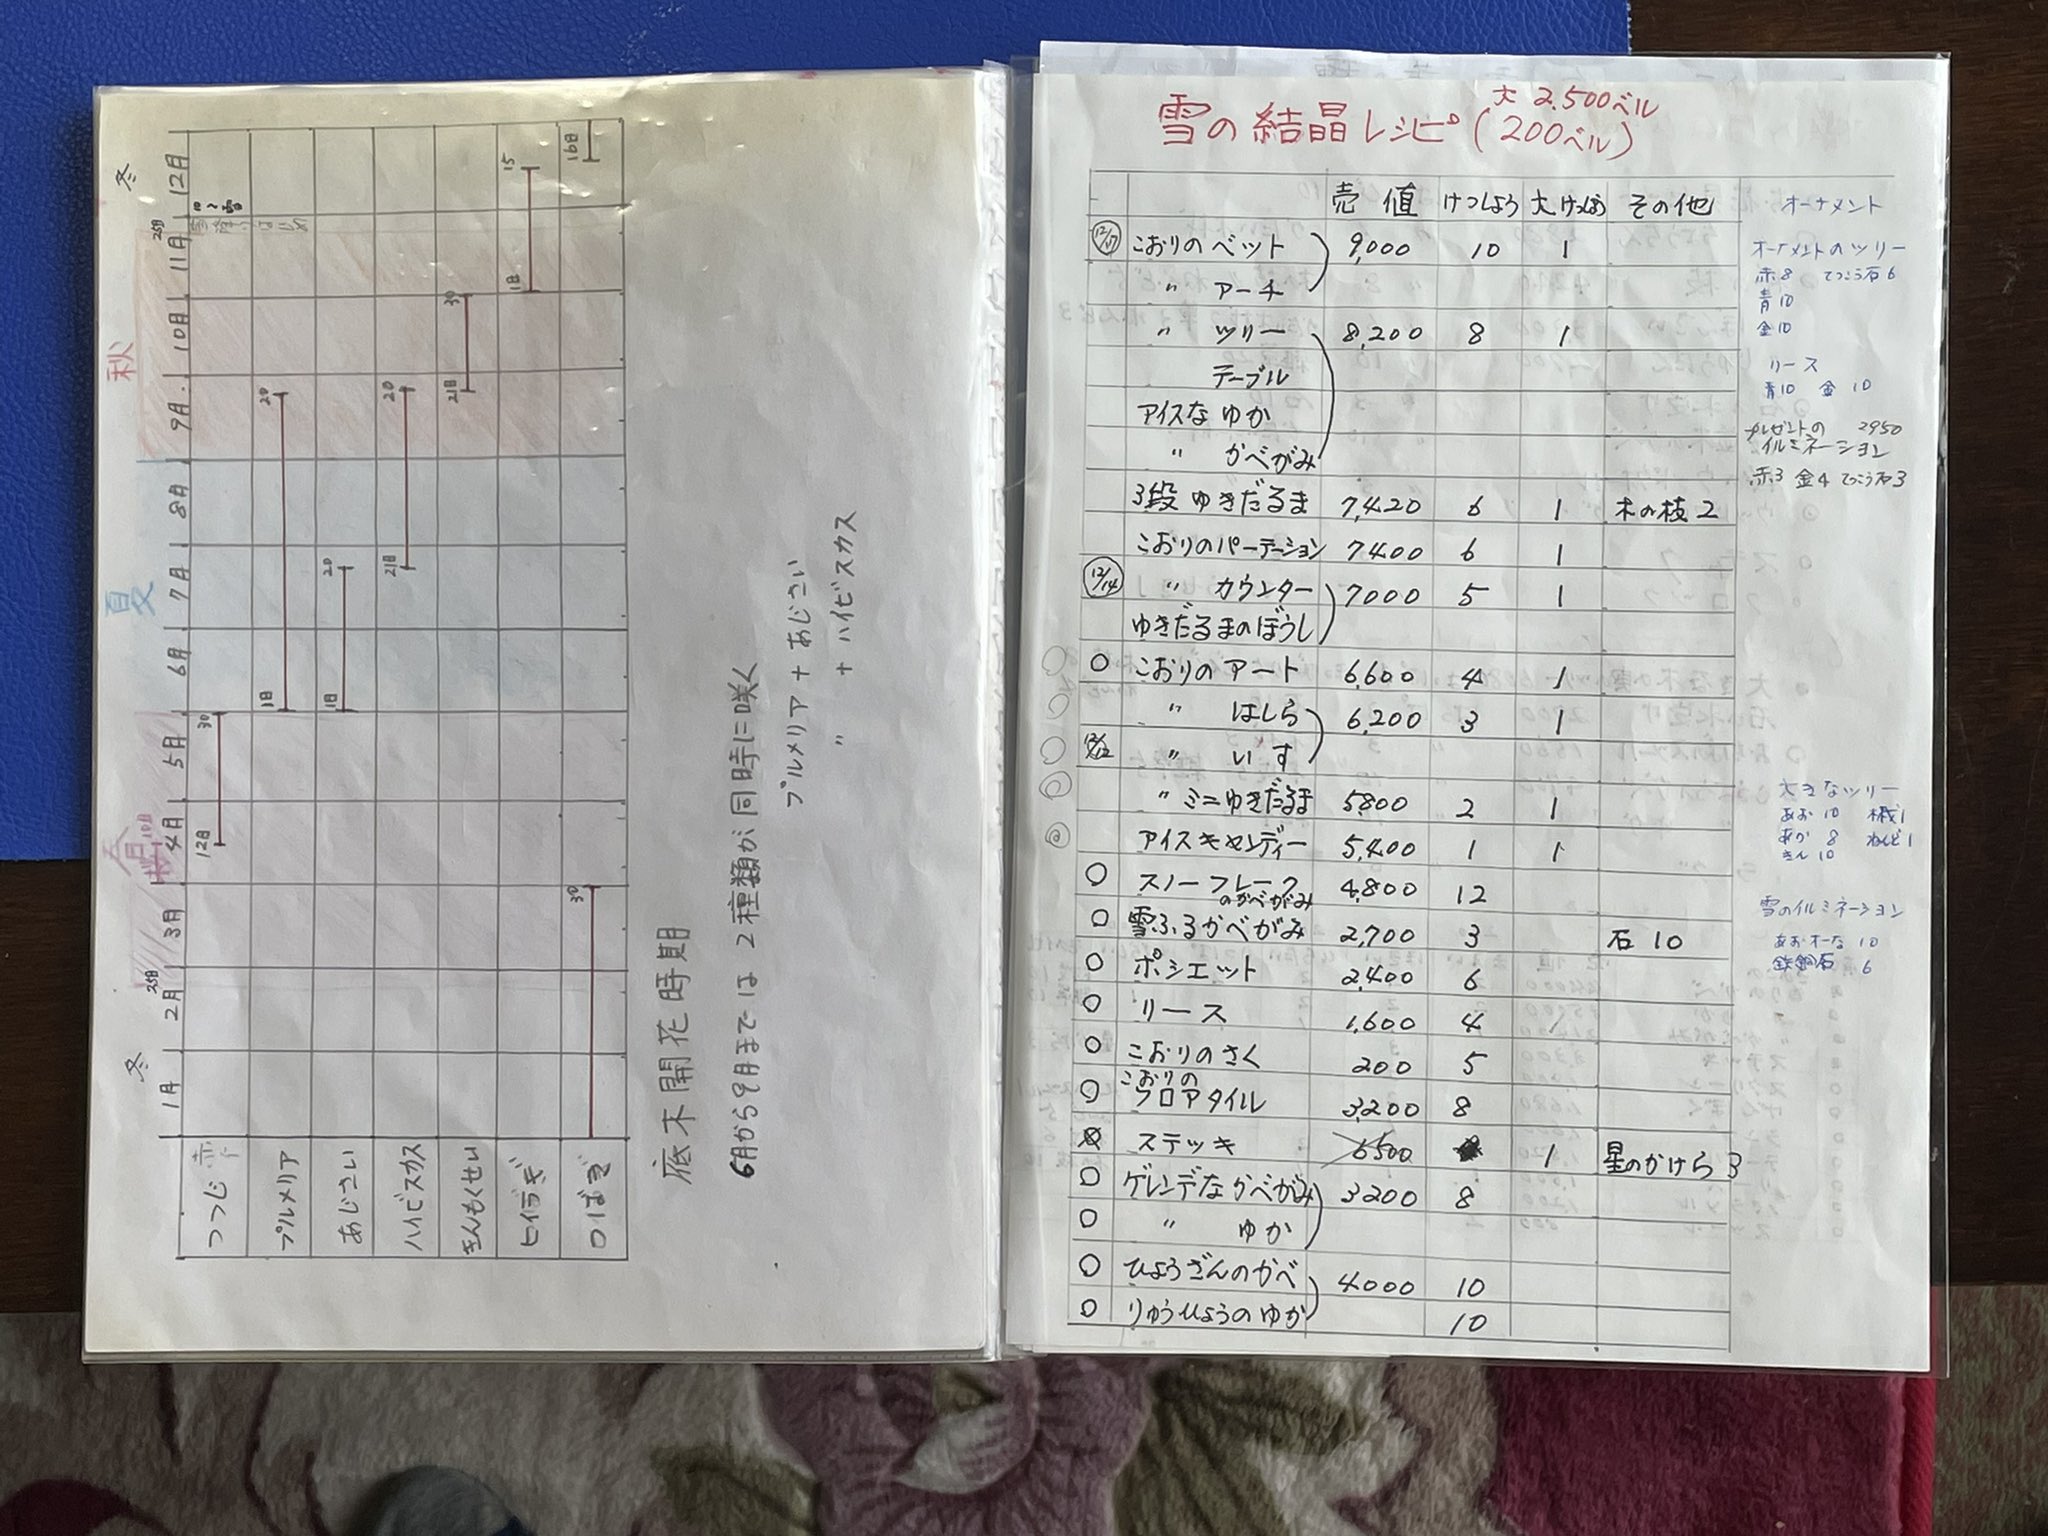 冬
冬
夏
秋
1月
2月
25日
3月
4月
10日
5月
6月
7月
8月
9月
10月
11月
25日
12月
10〜雪
つつじ 赤
12日
30
プルメリア
1日
20
あじさい
1日
20
ハイビスカス
21日
20
きんもくせい
21日
30
ヒイラギ
1日
15
つばき
30
16日
底木開花時期
6月から9月までは 2種類が同時に咲く
プルメリア + あじさい
〃 + ハイビスカス
大 2,500ベル
雪の結晶レシピ (200ベル)
売値 けっしょう 大けっしょう その他
12/17 こおりのベット 9,000 10 1
〃 アーチ
〃 ツリー 8,200 8 1
テーブル
アイスなゆか
〃 かべがみ
3段ゆきだるま 7,420 6 1 木の枝2
こおりのパーテーション 7400 6 1
12/14 〃 カウンター 7000 5 1
ゆきだるまのぼうし
○ こおりのアート 6,600 4 1
〃 はしら 6,200 3 1
〃 いす
〃 ミニゆきだるま 5,800 2 1
アイスキャンディー 5,400 1 1
○ スノーフレーク 4,800 12
のかべがみ
○ 雪ふるかべがみ 2,700 3 石 10
○ ポシェット 2,400 6
○ リース 1,600 4
○ こおりのさく 200 5
○ こおりの
フロアタイル 3,200 8
ステッキ 6500 1 星のかけら 3
○ ゲレンデなかべがみ 3200 8
○ 〃 ゆか
○ ひょうざんのかべ 4,000 10
○ りゅうひょうのゆか 10
オーナメント
オーナメントのツリー
赤8 てっこう石6
青10
金10
リース
青10 金10
プレゼントの 2950
イルミネーション
赤3 金4 てっこう石3
大きなツリー
あお 10
あか 8 ねんど1
きん 10
雪のイルミネーション
あおオーな 10
鉄鋼石 6